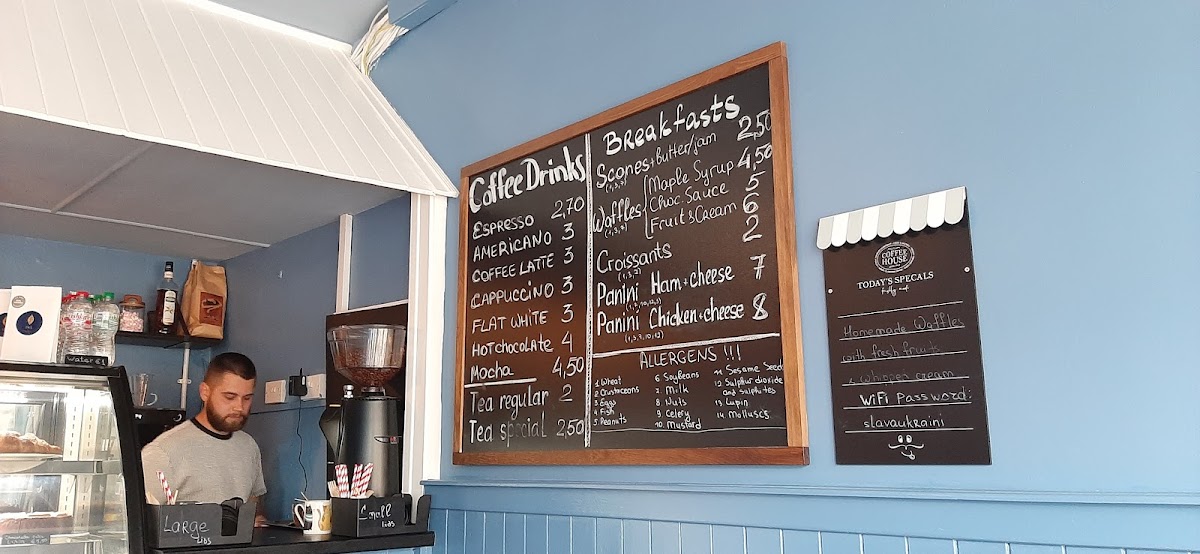 Coffee Drinks
ESPRESSO 2,70
AMERICANO 3
COFFEE LATTE 3
CAPPUCCINO 3
FLAT WHITE 3
HOT chocolate 4
Mocha 4,50
Tea regular 2
Tea special 2,50
Breakfasts
Scones + butter/jam 2,50
(1,3,7)
Waffles
(1,3,7)
Maple Syrup 4,50
Choc. Sauce 5
Fruit & Cream 6
Croissants 2
(1,3,7)
Panini Ham + cheese 7
Panini Chicken + cheese 8
ALLERGENS !!!
1 Wheat
2 Crustaceons
3 Eggs
4 Fish
5 Peanuts
6 Soybeans
7 Milk
8 Nuts
9 Celery
10 Mustard
11 Sesame Seed
12 Sulphur dioxide
and Sulphites
13 Lupin
14 Molluscs
COFFEE
HOUSE
TODAY'S SPECALS
Homemade Waffles
with fresh fruits
& whipped cream
WiFi Password:
slavaukraini
water €1
Large
Lids
Small
Lids